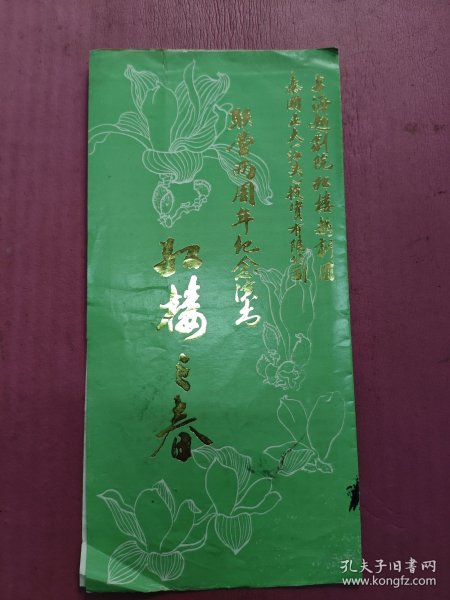 上海越剧院红楼越剧团
泰国正大(汕头)投資有限公司
联营两周年纪念演出
红楼之春
孔夫子旧书网
www.kongfz.com